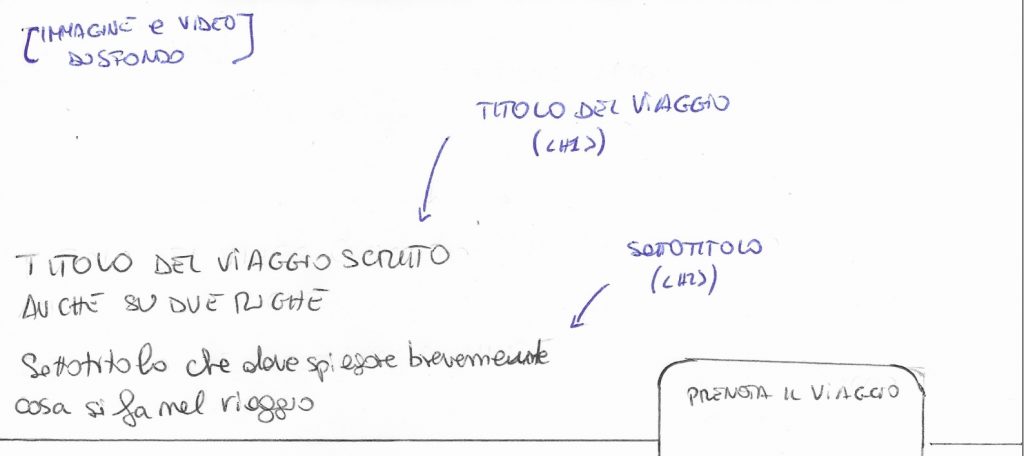 [IMMAGINE e VIDEO
DI SFONDO]
TITOLO DEL VIAGGIO
(<H1>)
TITOLO DEL VIAGGIO SCRITTO
ANCHE SU DUE RIGHE
SOTTOTITOLO
(<H2>)
Sottotitolo che deve spiegare brevemente
cosa si fa nel viaggio
PRENOTA IL VIAGGIO